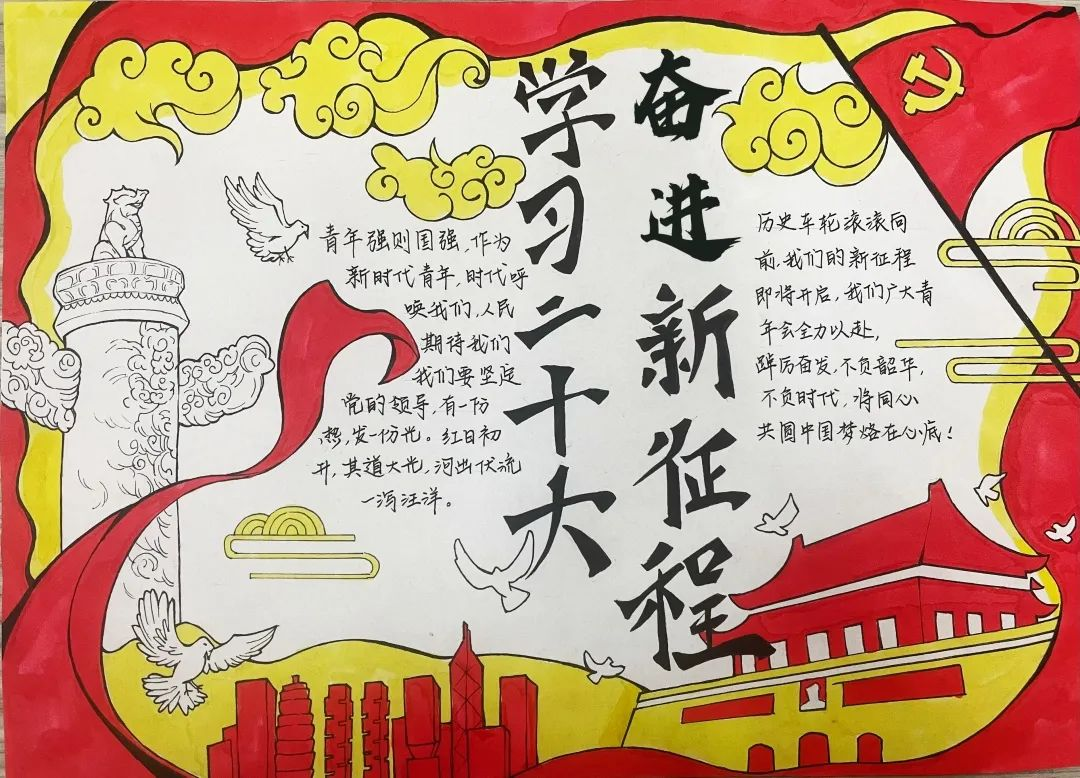 学习二十大
奋进新征程
青年强则国强,作为
新时代青年,时代呼
唤我们,人民
期待我们
我们要坚定
党的领导,有一份
热,发一份光。红日初
升,其道大光,河出伏流
一泻汪洋。
历史车轮滚滚向
前,我们的新征程
即将开启,我们广大青
年会全力以赴,
踔厉奋发,不负韶华,
不负时代,将同心
共圆中国梦烙在心底!